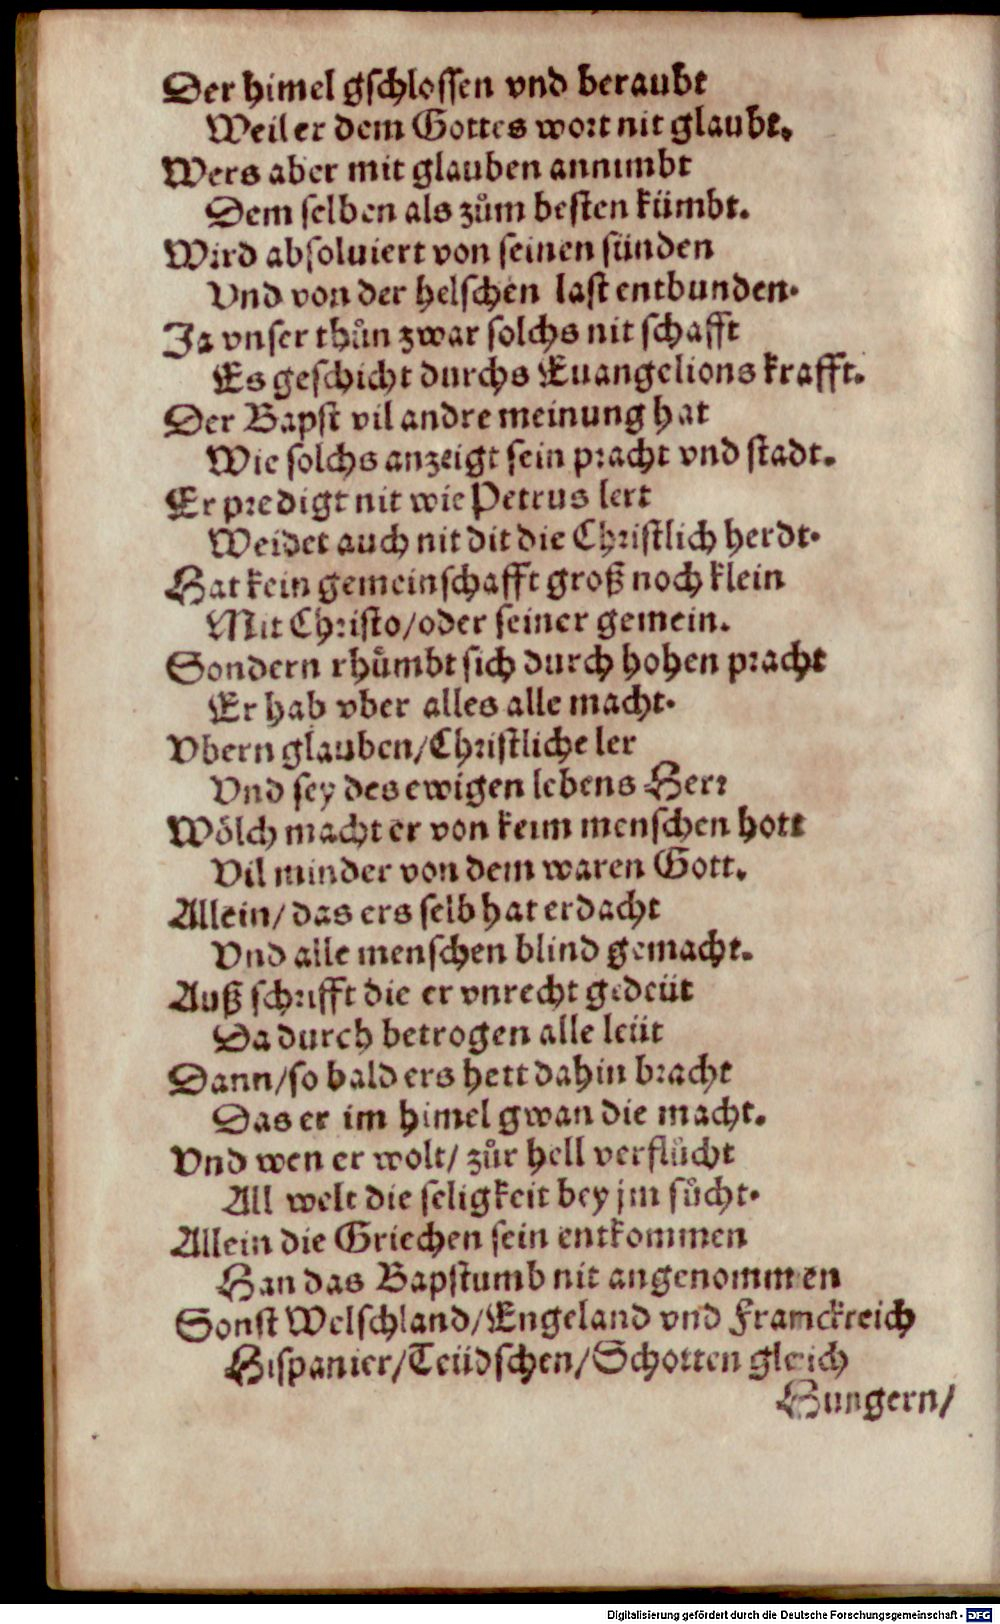 Der himel gschlossen vnd beraubt
Weil er dem Gottes wort nit glaubt.
Wers aber mit glauben annimbt
Dem selben als zům besten kümbt.
Wird absoluiert von seinen sünden
Vnd von der helschen last entbunden.
Ja vnser thůn zwar solchs nit schafft
Es geschicht durchs Euangelions krafft.
Der Bapst vil andre meinung hat
Wie solchs anzeigt sein pracht vnd stadt.
Er predigt nit wie Petrus lert
Weidet auch nit dit die Christlich herdt.
Hat kein gemeinschafft groß noch klein
Mit Christo/oder seiner gemein.
Sondern rhůmbt sich durch hohen pracht
Er hab vber alles alle macht.
Vbern glauben/Christliche ler
Vnd sey des ewigen lebens Herr
Wölch macht er von keim menschen hott
Vil minder von dem waren Gott.
Allein/das ers selb hat erdacht
Vnd alle menschen blind gemacht.
Auß schrifft die er vnrecht gedeüt
Da durch betrogen alle leüt
Dann/so bald ers hett dahin bracht
Das er im himel gwan die macht.
Vnd wen er wolt/zůr hell verflůcht
All welt die seligkeit bey jm sůcht.
Allein die Griechen sein entkommen
Han das Bapstumb nit angenommen
Sonst Welschland/Engeland vnd Franckreich
Hispanier/Teüdschen/Schotten gleich
Hungern/
Digitalisierung gefördert durch die Deutsche Forschungsgemeinschaft - DFG